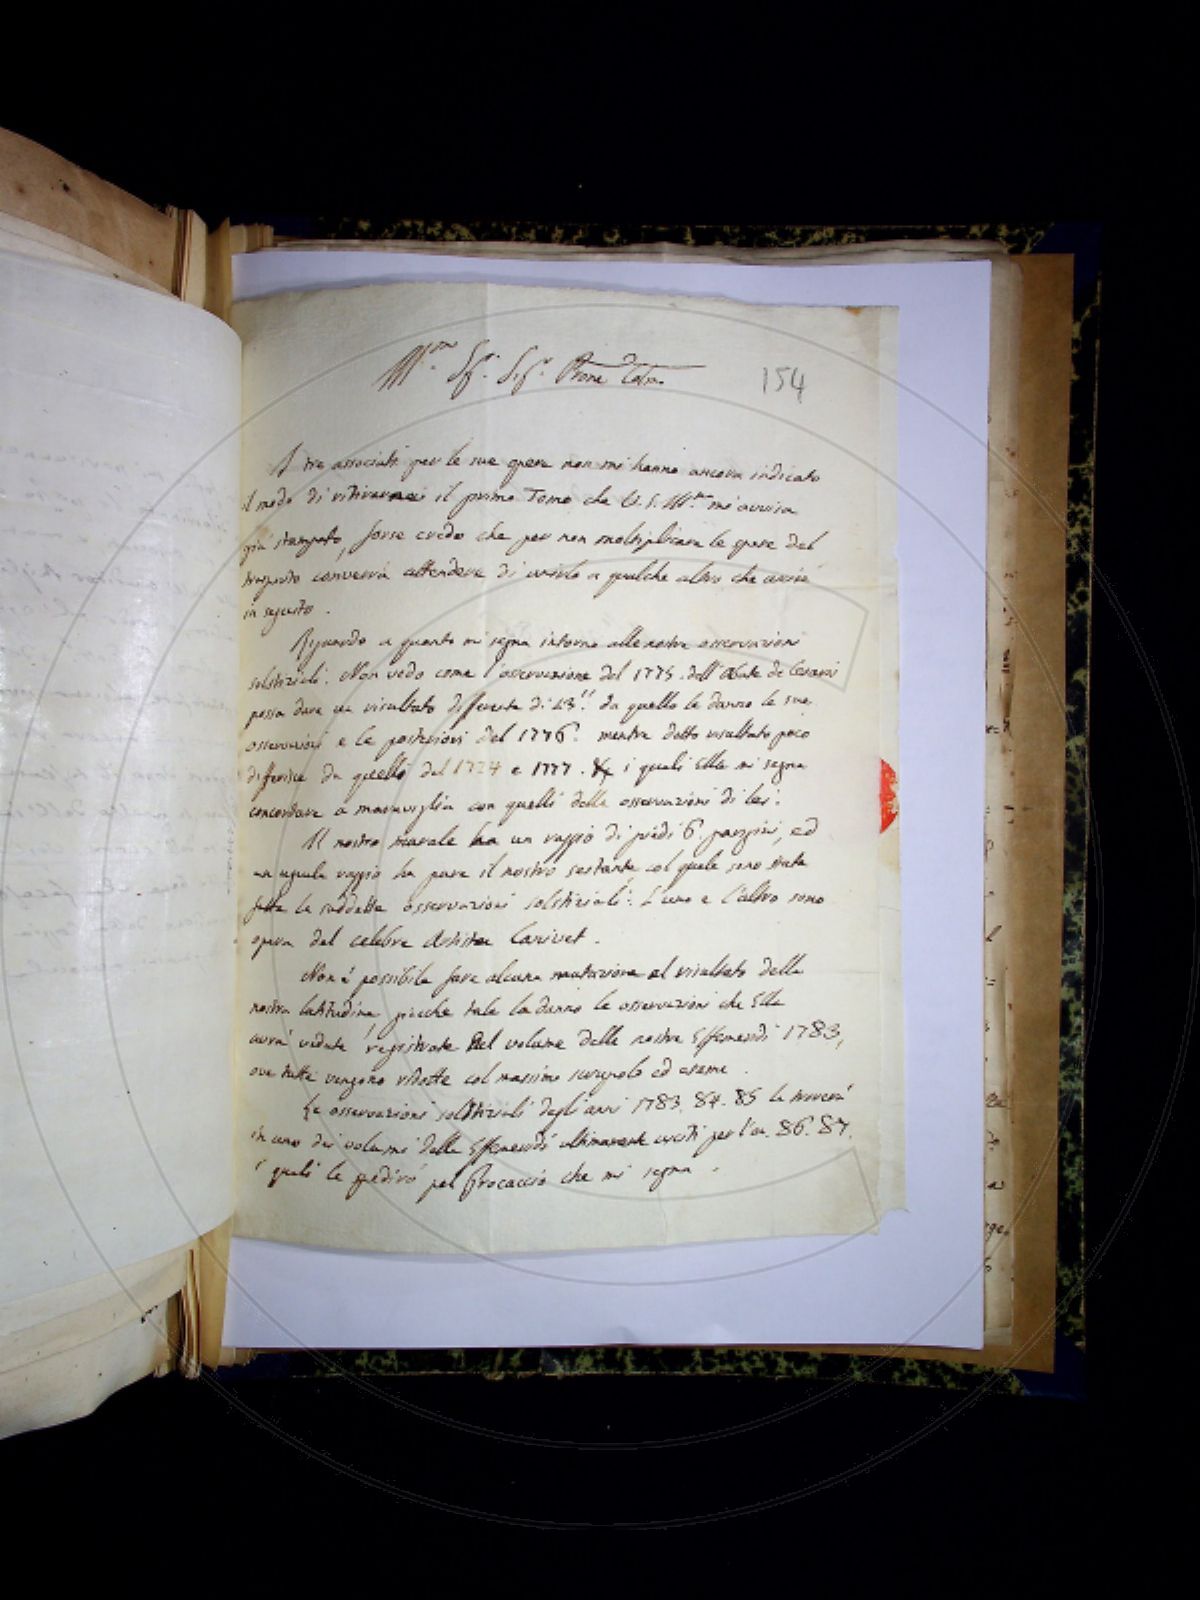 Ill.mo Sig. Sig.r Prone Colmo
154
I tre associati per le sue opere non mi hanno ancora indicato
il modo di ritirarne il primo Tomo che V. S. Ill.ma mi avvisa
già stampato, forse credo che per non moltiplicare le spese del
trasporto converrà attendere di unirlo a qualche altro che uscirà
in seguito.
Riguardo a quanto mi segna intorno alle nostre osservazioni
solstiziali. Non vedo come l'osservazione del 1775. dell'Abate de Cesaris
possa dare un risultato differente di 23". da quello le danno le sue
osservazioni e le posteriori del 1776. mentre detto risultato poco
differisce da quelli del 1774 e 1777. i quali Ella mi segna
concordare a maraviglia con quelli delle osservazioni di lei.
Il nostro murale ha un raggio di piedi 6. parigini, ed
un uguale raggio ha pure il nostro sestante col quale sono state
fatte le suddette osservazioni solstiziali. L'uno e l'altro sono
opera del celebre Artista Canivet.
Non è possibile fare alcuna mutazione al risultato della
nostra latitudine, giacche tale la danno le osservazioni che Ella
avrà vedute registrate nel volume delle nostre Effemeridi 1783,
ove tutte vengono ridotte col massimo scrupolo ed esame.
Le osservazioni solstiziali degli anni 1783. 84. 85 le troverà
in uno dei volumi delle Effemeridi ultimamente usciti per l'an. 86. 87.
i quali le spedirò pel Procaccio che mi segna.